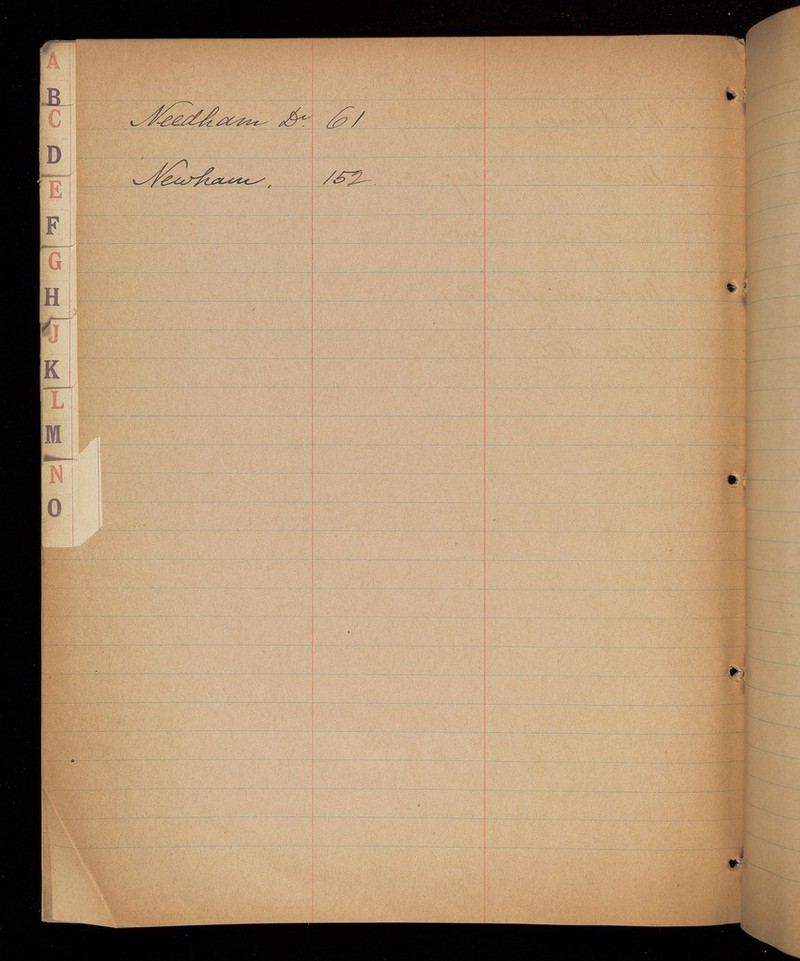 A
B
C
D
E
F
G
H
J
K
L
M
N
O
Needham Dr. 61
Newham. 152.